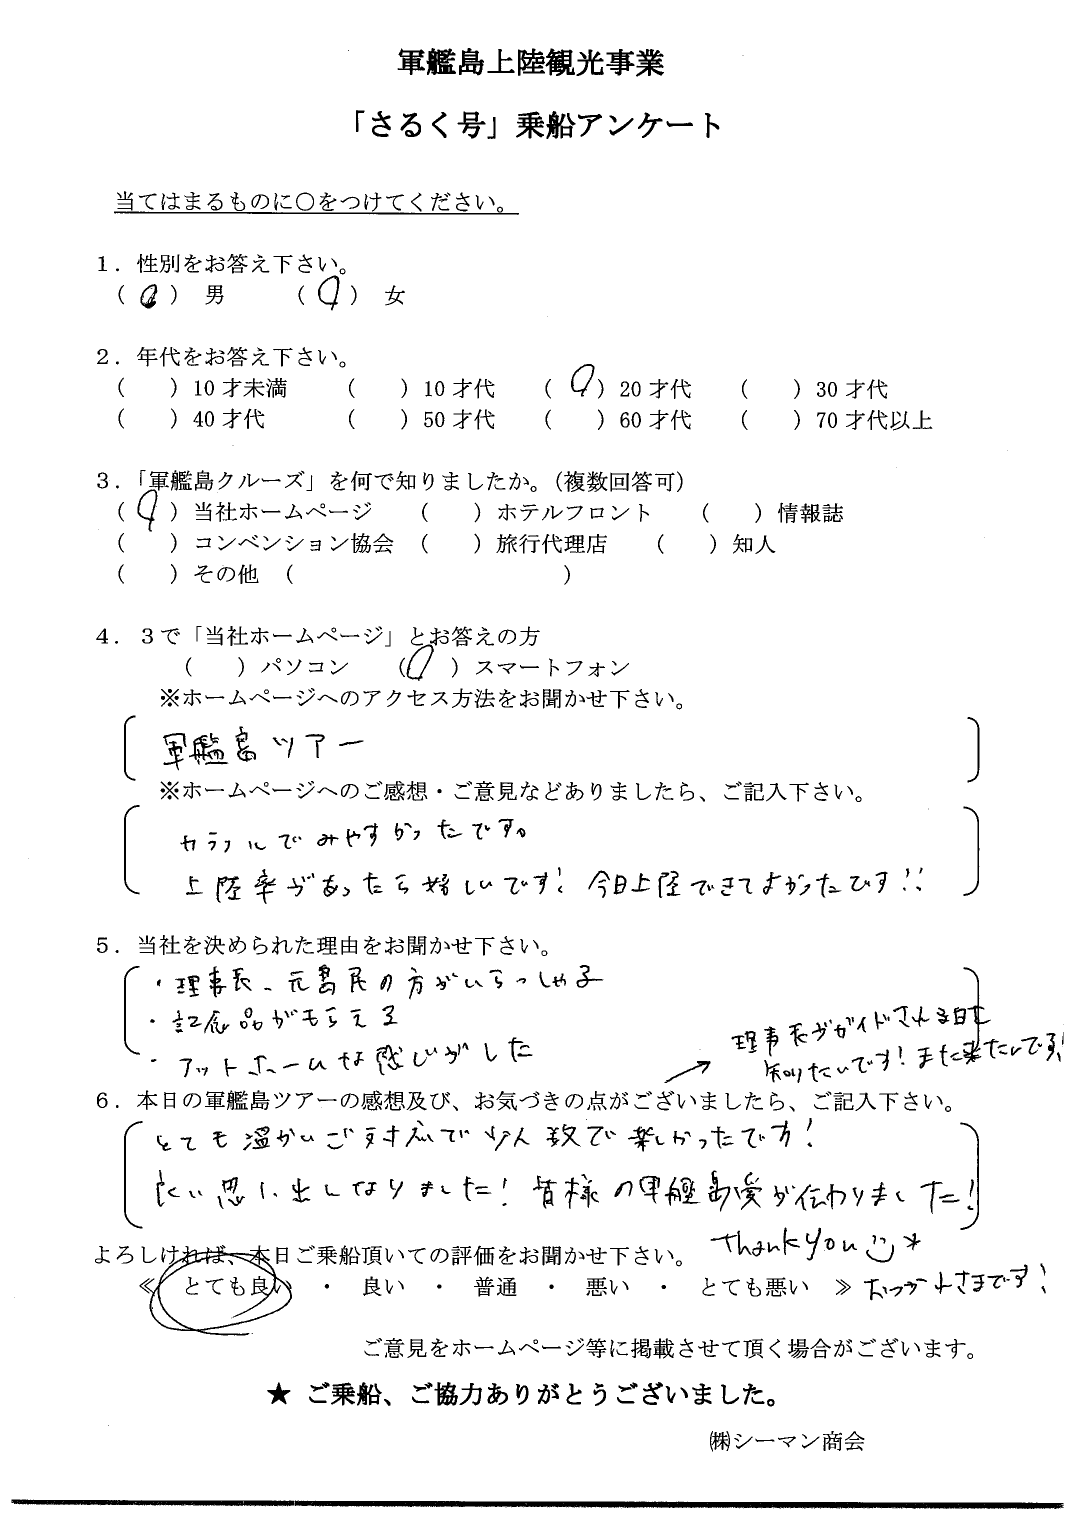 軍艦島上陸観光事業
「さるく号」乗船アンケート
当てはまるものに○をつけてください。
1. 性別をお答え下さい。
( ) 男 (○) 女
2. 年代をお答え下さい。
( ) 10才未満 ( ) 10才代 (○) 20才代 ( ) 30才代
( ) 40才代 ( ) 50才代 ( ) 60才代 ( ) 70才代以上
3.「軍艦島クルーズ」を何で知りましたか。(複数回答可)
(○) 当社ホームページ ( ) ホテルフロント ( ) 情報誌
( ) コンベンション協会 ( ) 旅行代理店 ( ) 知人
( ) その他 ( )
4. 3で「当社ホームページ」とお答えの方
( ) パソコン (○) スマートフォン
※ホームページへのアクセス方法をお聞かせ下さい。
軍艦島ツアー
※ホームページへのご感想・ご意見などありましたら、ご記入下さい。
カラフルでみやすかったです。
上陸率があったら嬉しいです! 今日上陸できてよかったです!!
5. 当社を決められた理由をお聞かせ下さい。
・理事長、元島民の方がいらっしゃる
・記念品がもらえる
・アットホームな感じがした
→ 理事長がガイドされる日も
知りたいです! また来たいです!
6. 本日の軍艦島ツアーの感想及び、お気づきの点がございましたら、ご記入下さい。
とても温かいで少人数で楽しかったです!
良い思い出しなりました! 皆様の軍艦島愛が伝わりました!
Thank you ☺ *
よろしければ、本日ご乗船頂いての評価をお聞かせ下さい。
≪ とても良い ・ 良い ・ 普通 ・ 悪い ・ とても悪い ≫ おつかれさまです!
ご意見をホームページ等に掲載させて頂く場合がございます。
★ ご乗船、ご協力ありがとうございました。
㈱シーマン商会